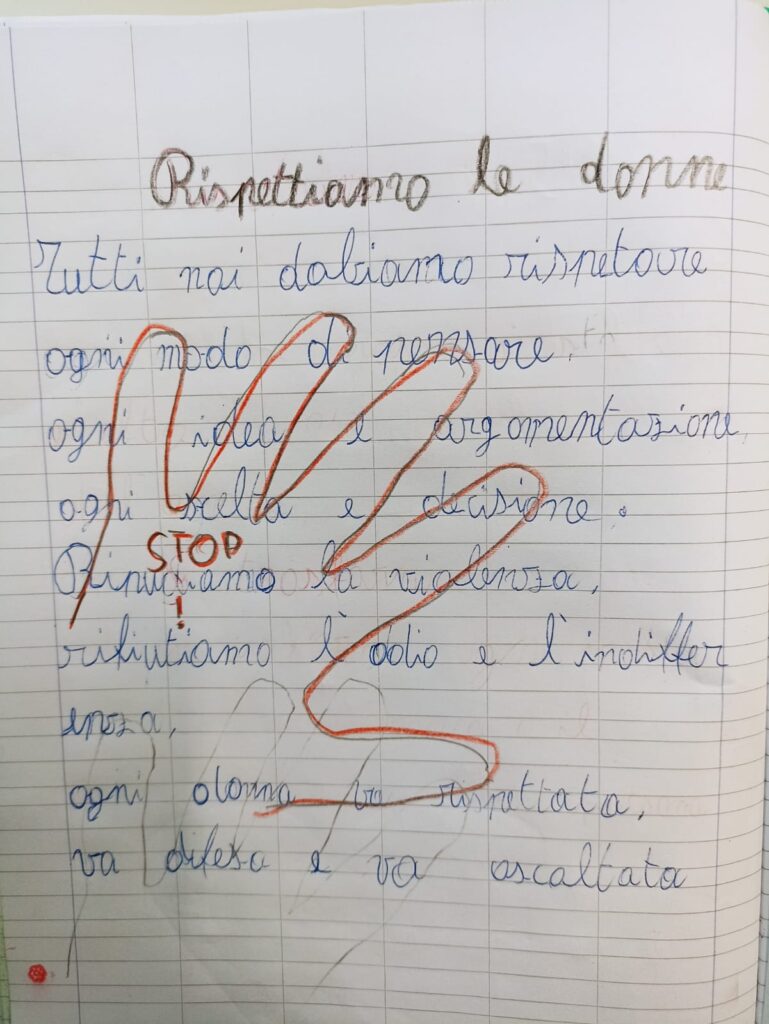 Rispettiamo le donne
Tutti noi dobiamo rispetare
ogni modo di pensare,
ogni idea e argomentazione,
ogni scelta e decisione.
STOP
!
Rifiutiamo la violenza,
rifiutiamo l'odio e l'indiffer
enza,
ogni donna va rispettata,
va difesa e va ascaltata